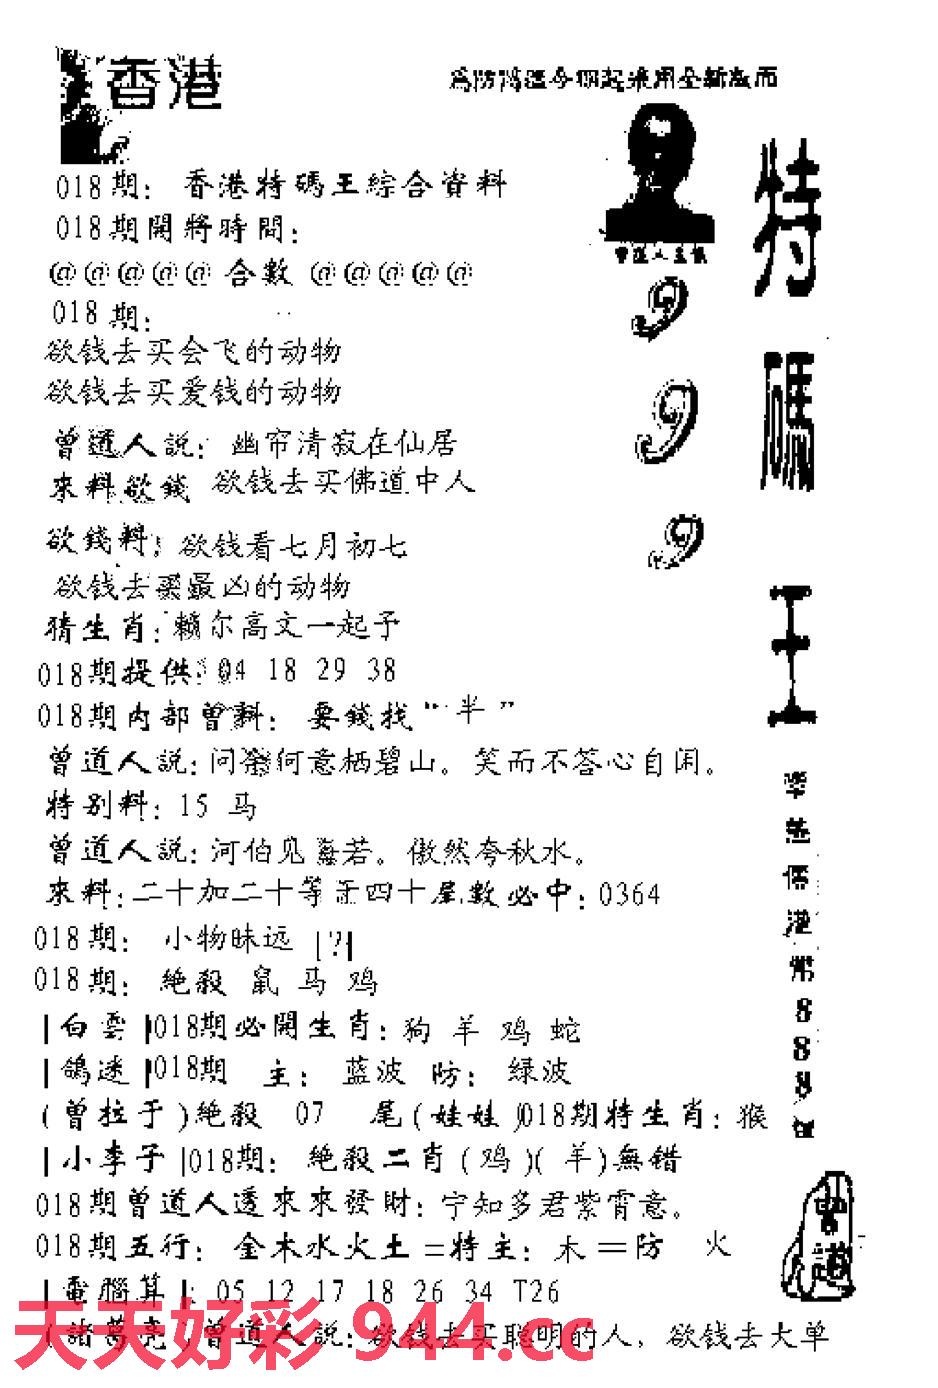 香港
018期：香港特碼王綜合資料
018期開將時間：
@@@@@ 合數 @@@@@
018期：
欲钱去买会飞的动物
欲钱去买爱钱的动物
曾道人説：幽帘清寂在仙居
來料欲錢 欲钱去买佛道中人
欲錢料：欲钱看七月初七
欲钱去买最凶的动物
猜生肖：尔高文一起予
018期提供：04 18 29 38
018期内部曾料：要錢找“半”
曾道人説：问余何意栖碧山。笑而不答心自闲。
特别料：15 马
曾道人説：河伯见海若。傲然夸秋水。
來料：二十加二十等于四十尾數必中：0364
018期：小物昧远 |?|
018期：絶殺 鼠 马 鸡
|白雲|018期必開生肖：狗 羊 鸡 蛇
|鴿迷|018期 主：蓝波 防：绿波
(曾拉于)絶殺 07 尾(娃娃)018期特生肖：猴
|小李子|018期：絶殺二肖(鸡)(羊)無错
018期曾道人透來來發財：宁知多君紫霄意。
018期五行：金木水火土=特主：木=防 火
|電腦算|：05 12 17 18 26 34 T26
(諸葛亮)曾道人説：欲钱去买聪明的人，欲钱去大单
天天好彩 944.cc
9
9
9
特
碼
王
港
幣
8
8
8
曾道